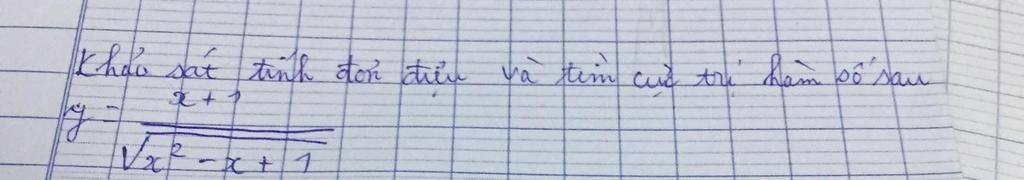 Khảo sát tính đơn điệu và tìm cực trị hàm số sau
y = x + 1 / √x² - x + 1